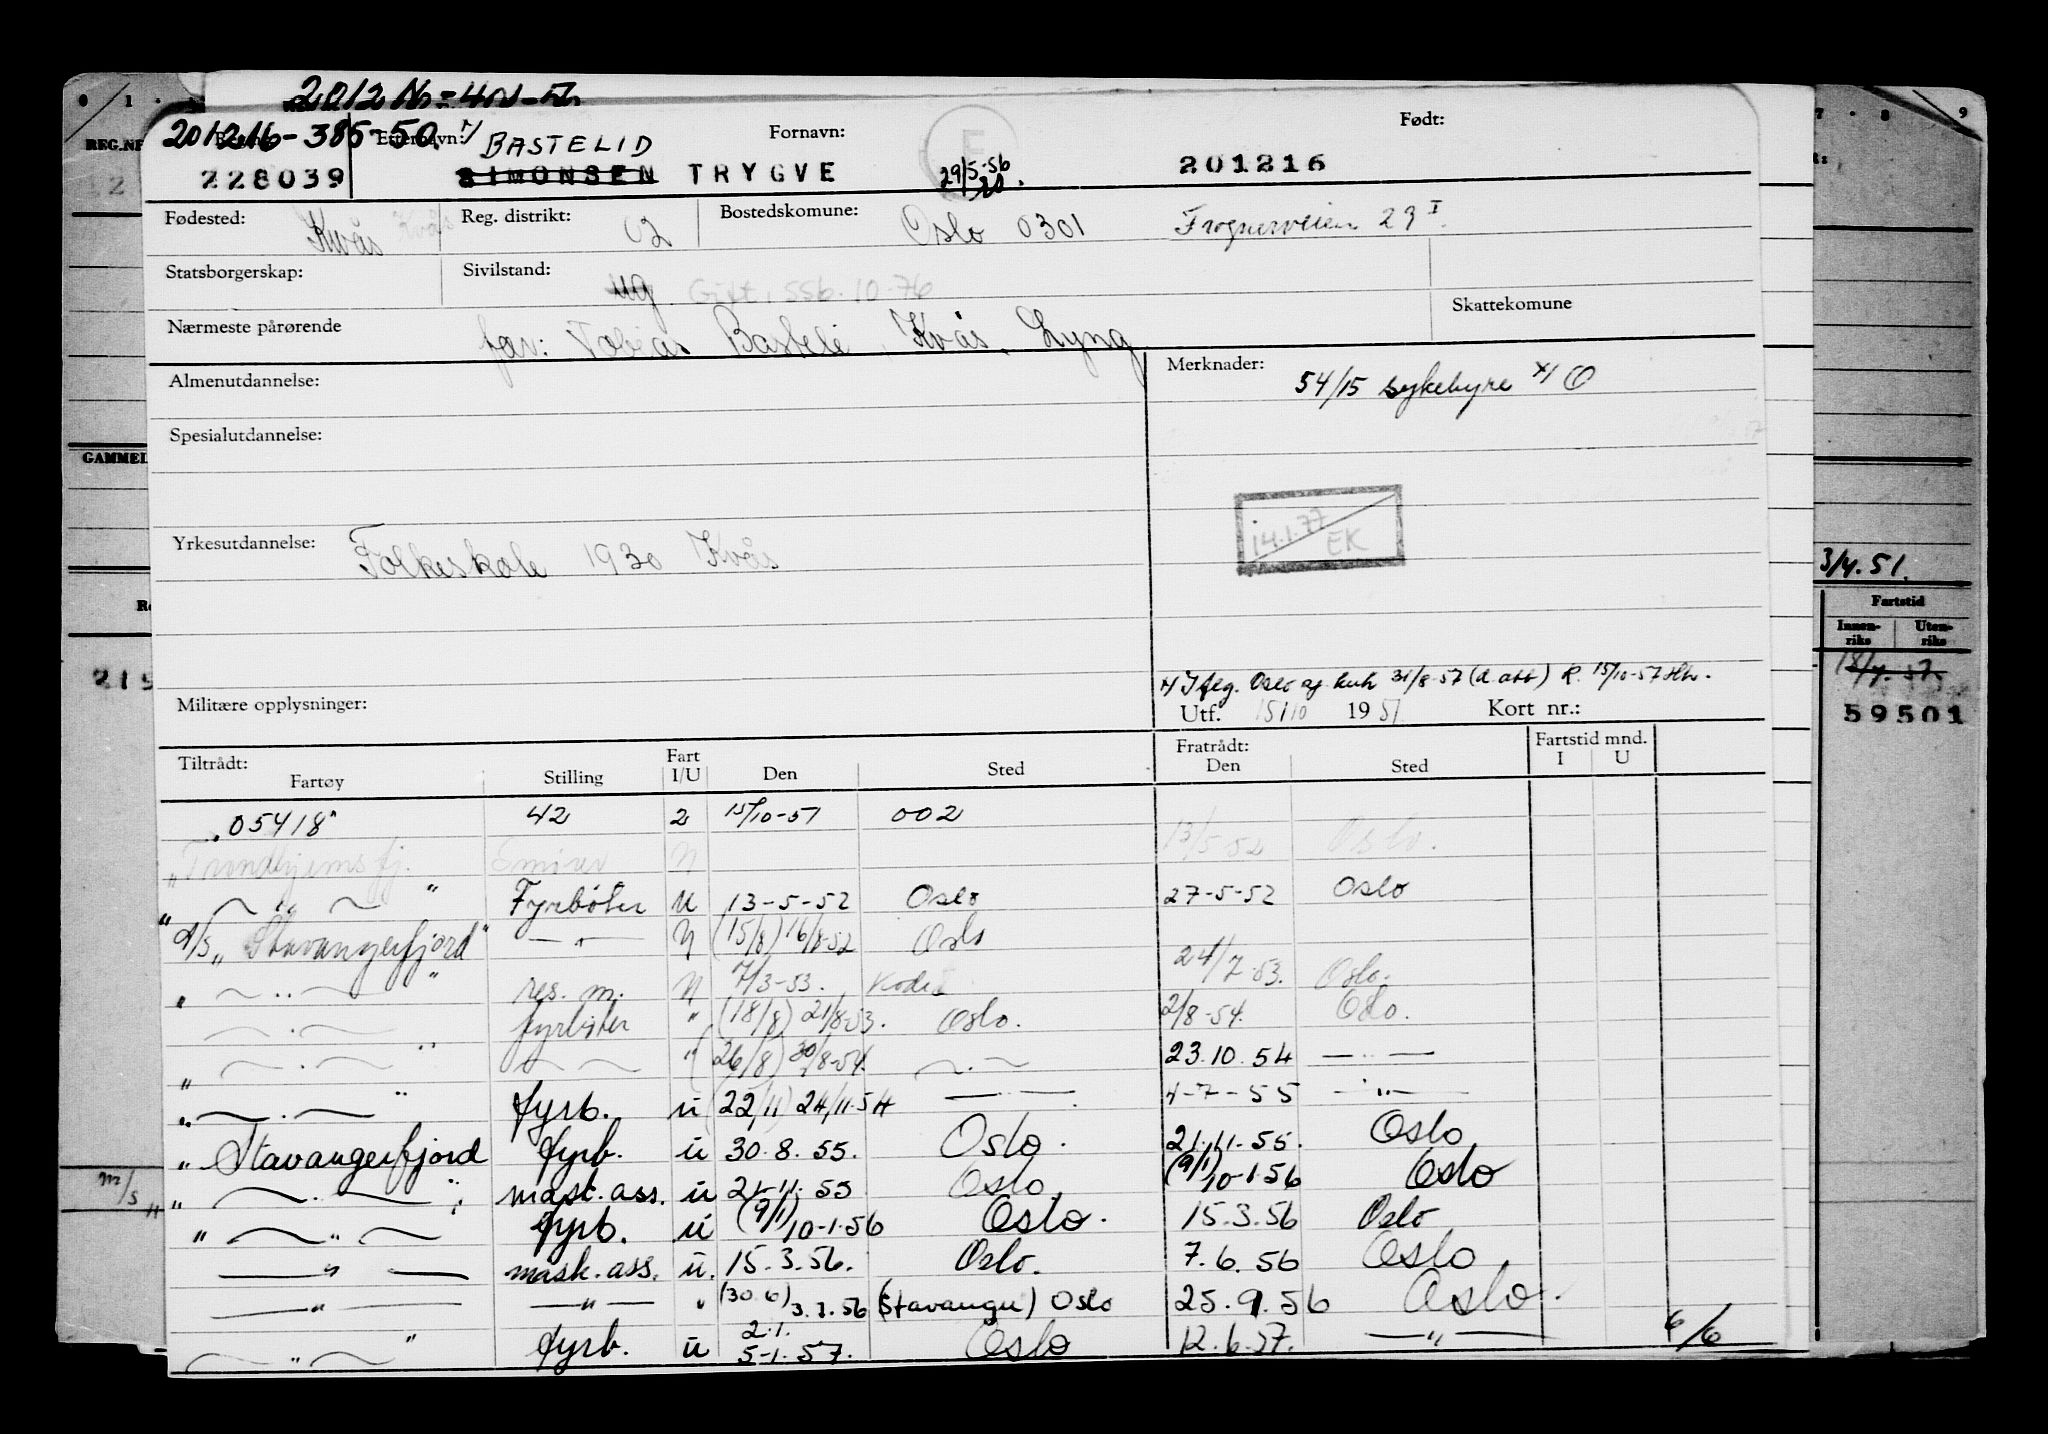 201216-385-50. x/ BASTELID
Reg.nr. Etternavn: Fornavn: Født:
228039 SIMONSEN TRYGVE 29/5-56 201216
Fødested: Kvås Kvås Reg. distrikt: 02 Bostedskomune: Oslo 0301 Frognerveien 23 I
Statsborgerskap: Sivilstand: ug. Gift, 556-10-76
Skattekomune
Nærmeste pårørende far: Tobias Bastelé, Kvås, Lyng
Almenutdannelse: Merknader: 54/15 sykehyre x/ O
Spesialutdannelse:
14.1.77 EK
Yrkesutdannelse: Folkeskole 1930 Kvås
x/ Iflg. Oslo 31/8-57 (d.att) R. 15/10-57
Militære opplysninger: Utf. 15/10 1951 Kort nr.:
Tiltrådt: Fart Fratrådt: Fartstid mnd.
Fartøy Stilling I/U Den Sted Den Sted I U
"05418" 42 2 15/10-51 002
"Trondhjemsfj. Smører U 13/5-52 Oslo.
" — " — " Fyrbøter U 13-5-52 Oslo 27-5-52 Oslo
D/S "Stavangerfjord" — " — U (15/8) 16/8-52 Oslo
" — " — " res. m. U 7/3-53. 24/7-53. Oslo.
— " — fyrbøter " (18/8) 21/8-53. Oslo. 2/8-54. Oslo.
" — " — " — " — " (26/8) 30/8-54. — " — 23.10.54 — " —
" — " — " fyrb. u (22/11) 24/11.54 — " — 4-7-55 — " —
" Stavangerfjord fyrb. u 30.8.55. Oslo. 21.11.55. Oslo
" — " — " mask. ass. u 21-11-55 Oslo. (9/1) 10-1-56 Oslo
" — " — fyrb. u (9/1) 10-1-56 Oslo. 15.3.56 Oslo
— " — mask. ass. u. 15.3.56. Oslo. 7.6.56 Oslo
— " — — " — " (30.6) 3.7.56 (Stavanger) Oslo 25.9.56 Oslo.
— " — " fyrb. u 2.1. 5-1.57. Oslo 12.6.57. — " — 6/6
0 1
REG.NR
GAMMEL
215
m/s "
7 8 9
3/4.51.
Fartstid
Innenriks Utenriks
18/4.51.
59501